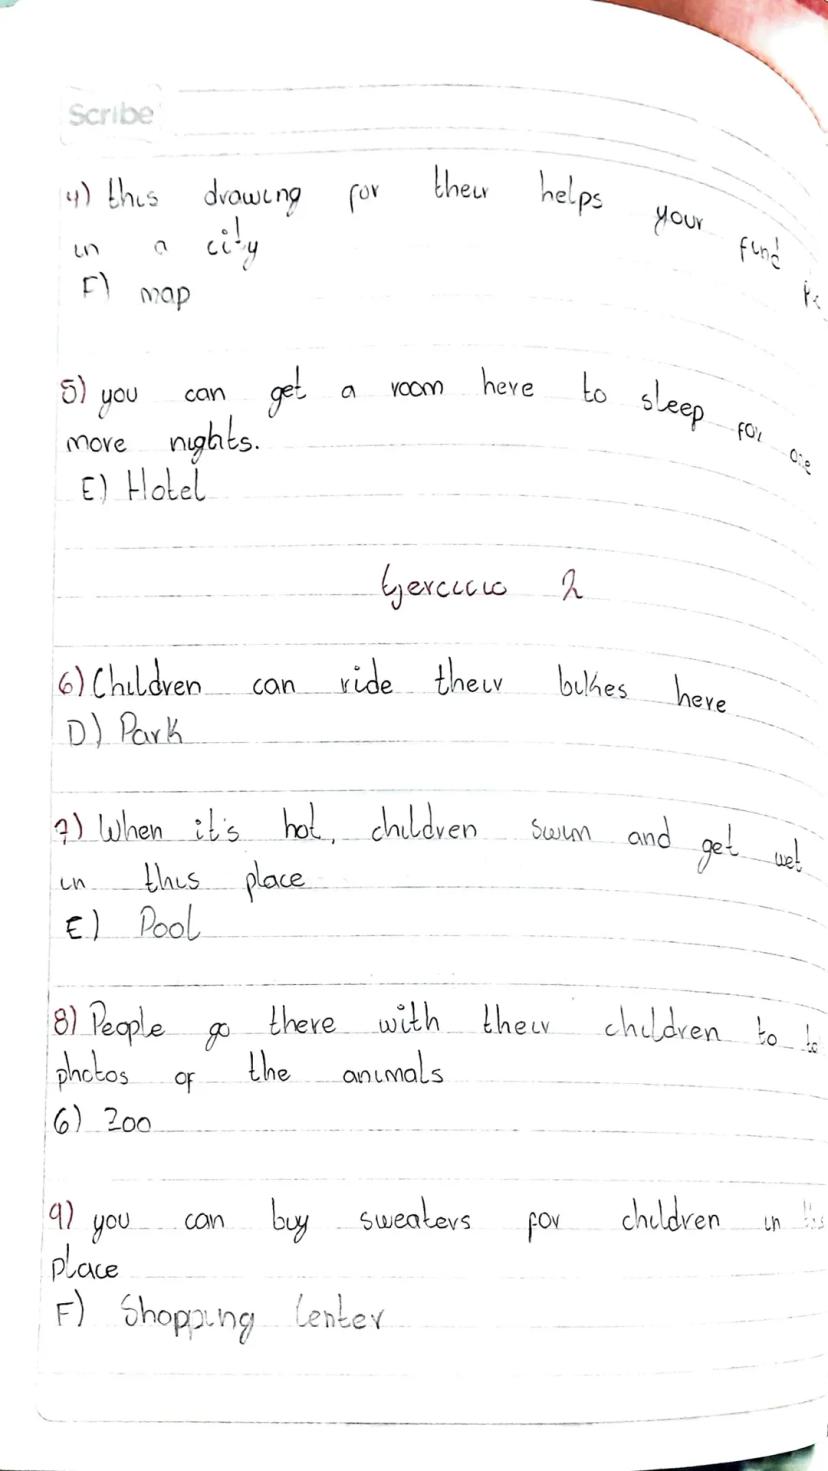 Scribe
4) this drawing for their helps your find
in a city
F) map
5) you can get a room here to sleep for one
more nights.
E) Hotel
Ejercicio 2
6) Children can ride their bikes here
D) Park
7) When it's hot, children swim and get wet
in this place
E) Pool
8) People go there with their children to
photos of the animals
6) Zoo
9) you can buy sweaters for children in this
place
F) Shopping Center